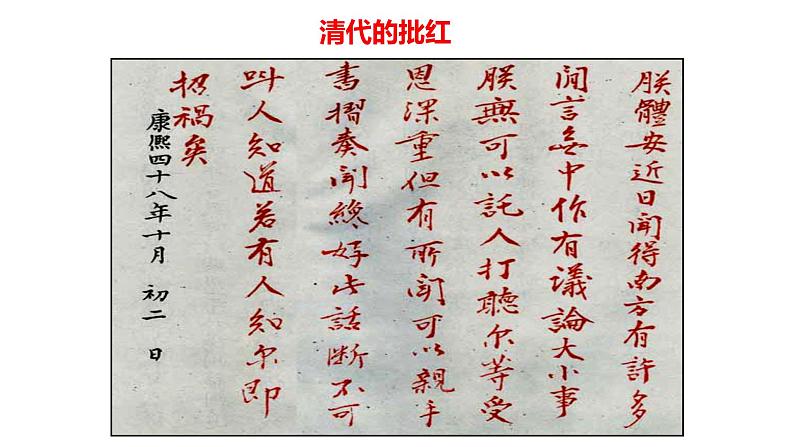 清代的批红
朕體安近日聞得南方有許多
閒言無中作有議論大小事
朕無可以託人打聽尔等受
恩深重但有所聞可以親手
書摺奏聞纔好此話斷不可
叫人知道若有人知尔即
招禍矣
康熙四十八年十月 初二 日